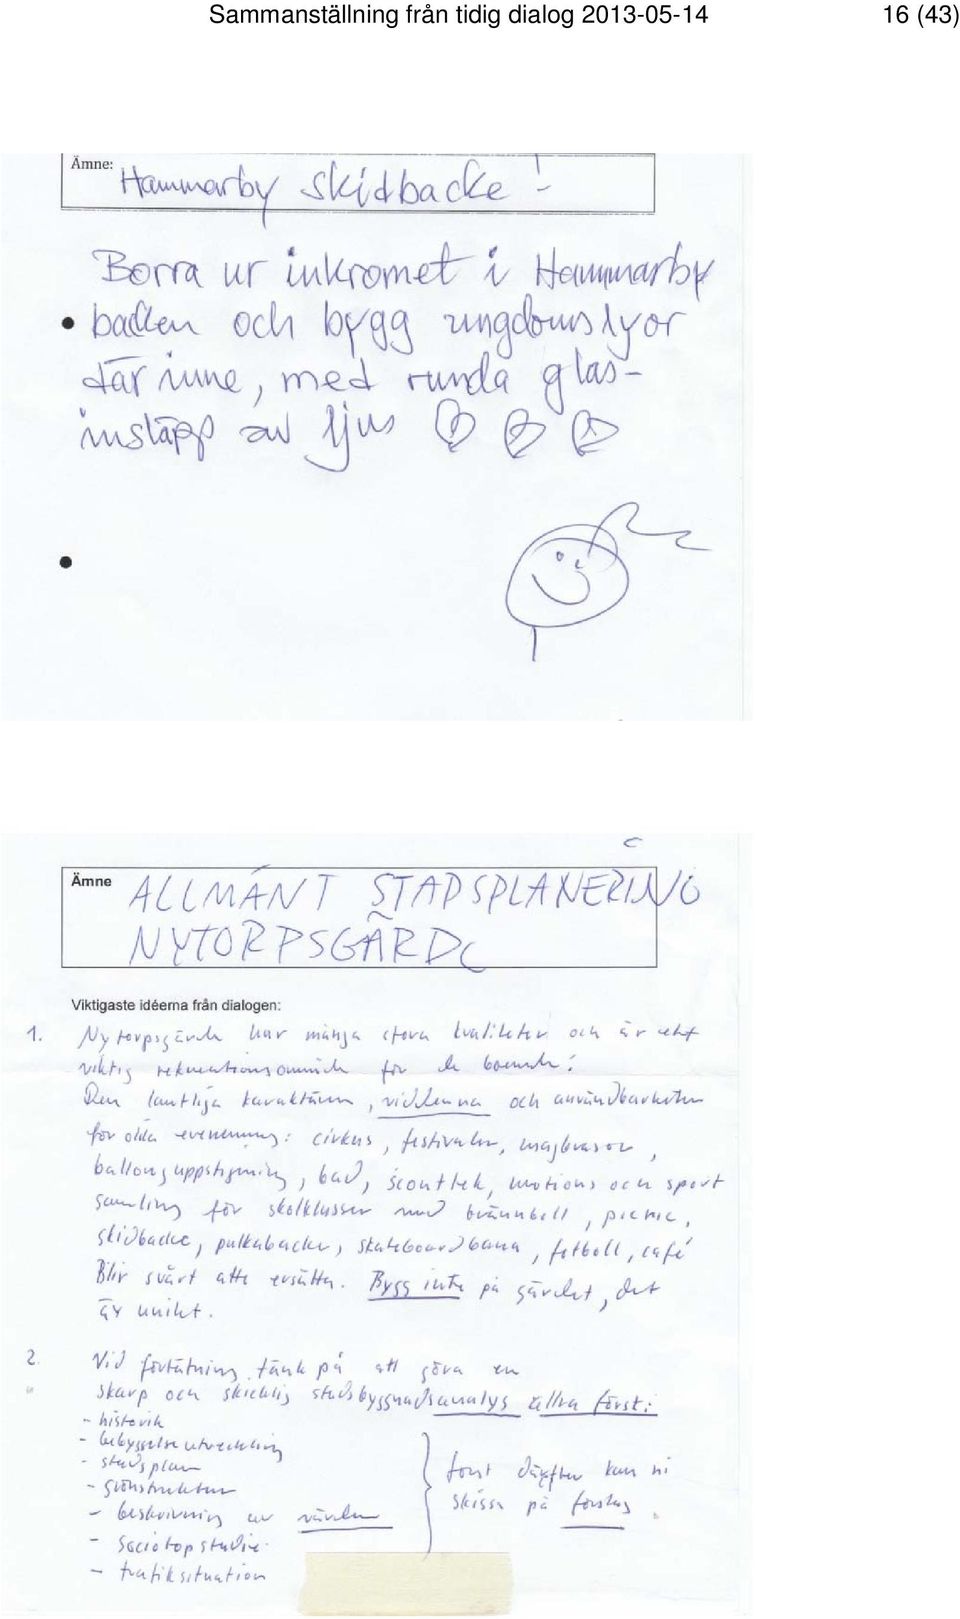 Sammanställning från tidig dialog 2013-05-14 16 (43)
Ämne: Hammarby skidbacke!
Borra ur inkromet i Hammarby
• backen och bygg ungdomslyor
där inne, med runda glas-
insläpp av ljus
•
Ämne ALLMÄNT STADSPLANERING
NYTORPSGÄRDE
Viktigaste idéerna från dialogen:
1. Nytorpsgärde har många stora kvaliteter och är ett
viktig rekreationsområde för de boende!
Den lantliga karaktären, vidderna och användbarheten
för olika evenemang: cirkus, festivaler, majbrasor,
ballonguppstigning, bad, scoutlek, motions och sport
samling för skolklasser med brännboll, picnic,
skidbacke, pulkabacke, skateboardbana, fotboll, café
Blir svårt att ersätta. Bygg inte på gärdet, det
är unikt.
2. Vid förtätning tänk på att göra en
skarp och skicklig stadsbyggnadsanalys allra först:
- historik
- bebyggelseutveckling
- stadsplan
- grönstruktur
- beskrivning av värden
- sociotopstudie
- trafiksituation
först därefter kan ni
skissa på förslag.